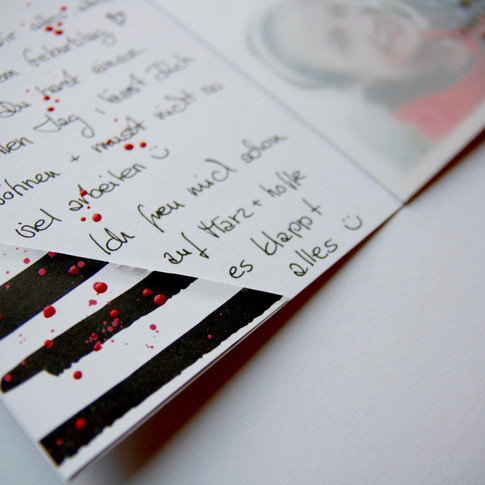 alles
Geburtstag ♡
Du hast einen
Tag, lässt dich
+ musst nicht so
viel arbeiten ☺
Ich freu mich schon
auf März + hoffe
es klappt
alles ☺